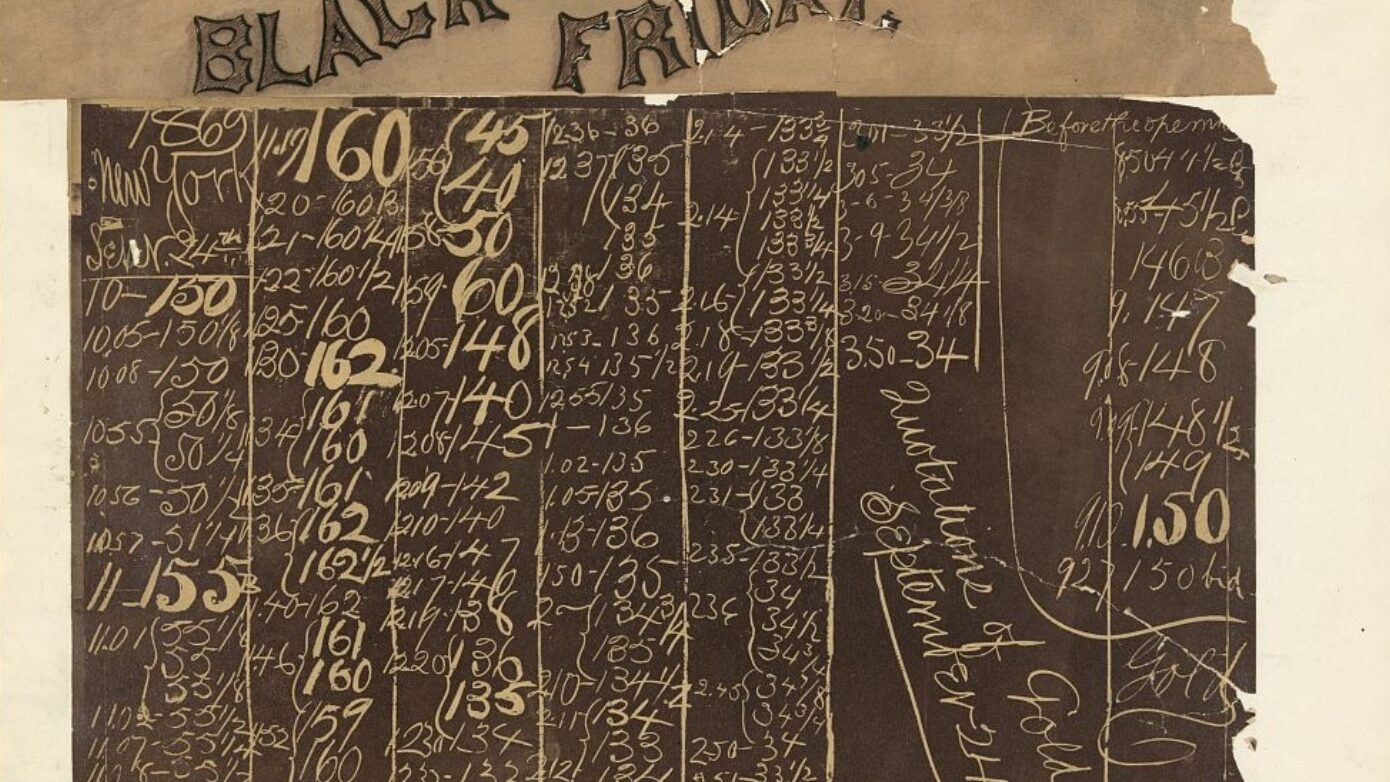 BLACK FRIDAY.
1869
New York
Sept. 24th
10-150
10.05-150 1/8
10 08-150
10.55 50 1/8
50 1/4
10.56-50 1/4
10.57-51 1/4
11-155
11.01 55 1/8
55
55 1/8
11.02-55 1/2
11.07-55 1/2
11.19 160
120-160 B
121-160 1/4
122-160 1/2
125-160
130-162
134 161
160
135-161
136 162
162 1/2
1.40-162
161
146 160
152 159
160
156 45
40
158 50
159 60
1205-148
1207-140
1208-145
1209-142
1210-140
1216-147
1217-146
1219-138
1220 136
135
1230-134
12 36-36
12 37 135
134
135
136
12 52 135
12 53-136
12 54 135 1/2
12 55 135
1-136
1.02-135
1.05-135
1.15-136
1.50-135
2-134 3/4
135
2 10-134 1/2
2 11-134
133
2.14-133 3/4
133 1/2
133 1/4
2.14 133 1/2
133 3/4
133 1/2
2.16-133 1/4
2.18-133 3/8
2.19-133 1/2
2.25-133 1/4
2 26-133 1/8
2 30-133 1/4
2 31-133
133 1/4
2 35-133 1/2
2 36 34
34 1/2
34 3/4
2.45 34 7/8
34 3/4
2 50-34
2 51-33 1/2
3 01-33 1/2
3 05-34
3-6-34 3/8
3-9-34 1/2
3.15-34 1/4
3.20-34 1/8
3.50-34
Quotations of Gold
September 24
Before the opening
146 B
9.147
9.08-148
9.09-148 1/2
149
9.10 150
9 27 150 bid
Gold